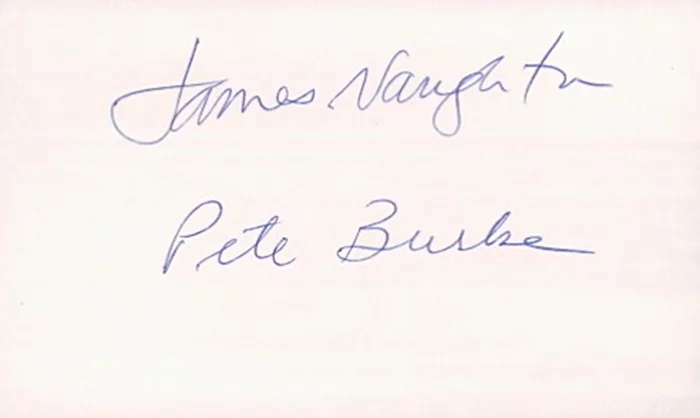 James Naughton
Pete Burke